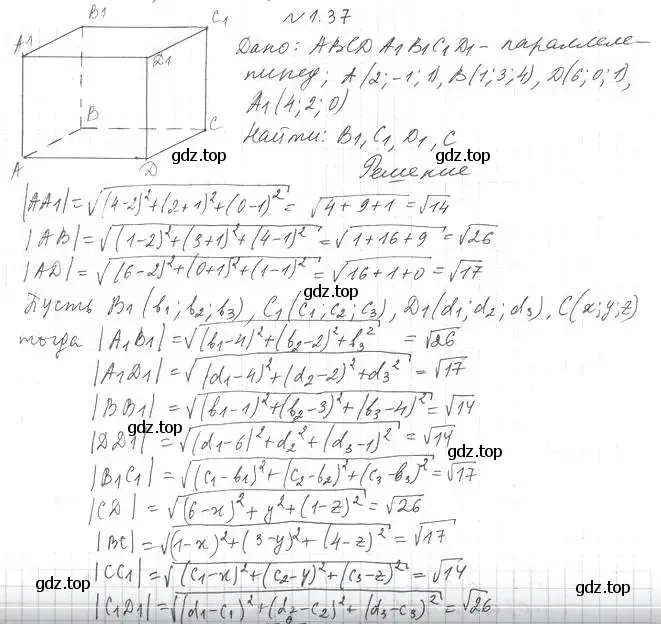 N 1.37
B1
C1
A1
D1
B
C
A
D
Дано: ABCDA1B1C1D1 - параллеле-
пипед; A(2;-1;1), B(1;3;4), D(6;0;1),
A1(4;2;0)
gdz.top
Найти: B1, C1, D1, C
Решение
gdz.top
|AA1|=√((4-2)²+(2+1)²+(0-1)²)= √(4+9+1)=√14
|AB|=√((1-2)²+(3+1)²+(4-1)²)=√(1+16+9)=√26
|AD|=√((6-2)²+(0+1)²+(1-1)²)=√(16+1+0)=√17
gdz.top
Пусть B1(b1;b2;b3), C1(c1;c2;c3), D1(d1;d2;d3), C(x;y;z)
тогда |A1B1|=√((b1-4)²+(b2-2)²+b3²) =√26
|A1D1|=√((d1-4)²+(d2-2)²+d3²)=√17
|BB1|=√((b1-1)²+(b2-3)²+(b3-4)²)=√14
gdz.top
|DD1|=√((d1-6)²+d2²+(d3-1)²)=√14
gdz.top
|B1C1|=√((c1-b1)²+(c2-b2)²+(c3-b3)²)=√17
|CD|=√((6-x)²+y²+(1-z)²)=√26
|BC|=√((1-x)²+(3-y)²+(4-z)²)=√17
|CC1|=√((c1-x)²+(c2-y)²+(c3-z)²)=√14
gdz.top
gdz.top
|C1D1|=√((d1-c1)²+(d2-c2)²+(d3-c3)²)=√26
gdz.top